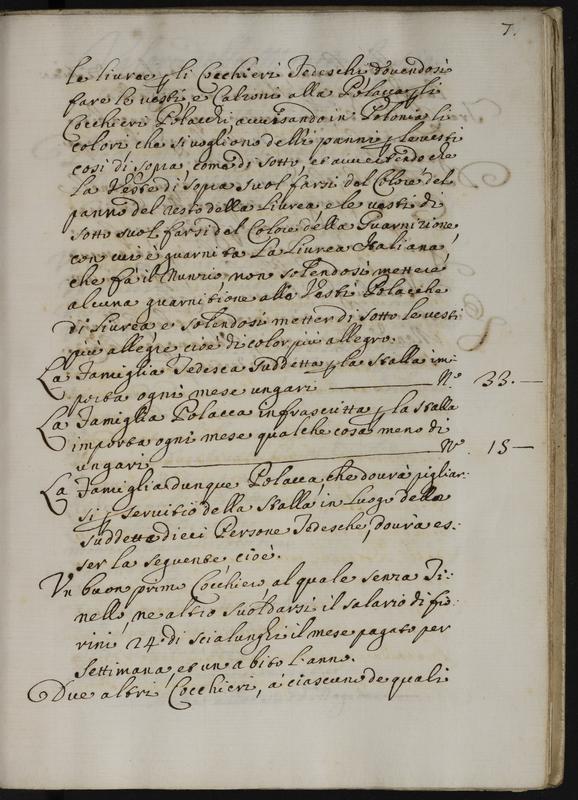 7.
le livree p li Cocchieri Tedeschi dovendosi
fare le vesti e Calzoni alla Polacca p li
Cocchieri Polacchi avvisando in Polonia li
colori che si vogliono delli panni p le vesti
così di sopra come di sotto et avvertendo che
la Veste di sopra suol farsi del Colore del
panno del resto della Livrea e le vesti di
sotto suol farsi del Colore della Guarnizione
con cui è guarnita La Livrea Italiana
che fà il Nunzio non solendosi mettere
alcuna guarnitione alle Vesti Polacche
di Livrea e solendosi metter di sotto le vesti
più allegre cioè di color più allegro.
La Famiglia Tedesca suddetta p la stalla im:
porta ogni mese ungari — N.º 33. —
La Famiglia Polacca infrascritta p la stalla
importa ogni mese qualche cosa meno di
ungari — Nº 15 —
La Famiglia dunque Polacca, che dovrà pigliar:
si p servitio della stalla in luogo delle
suddette dieci Persone Tedesche, dovrà es:
ser la seguente cioè.
Un buon primo Cocchiere al quale senza Ti:
nello, ne altro suol darsi il salario di fio:
rini 24 di Scialunghi il mese pagato per
settimana, et un abito l'anno.
Due altri Cocchieri, à ciascuno de quali